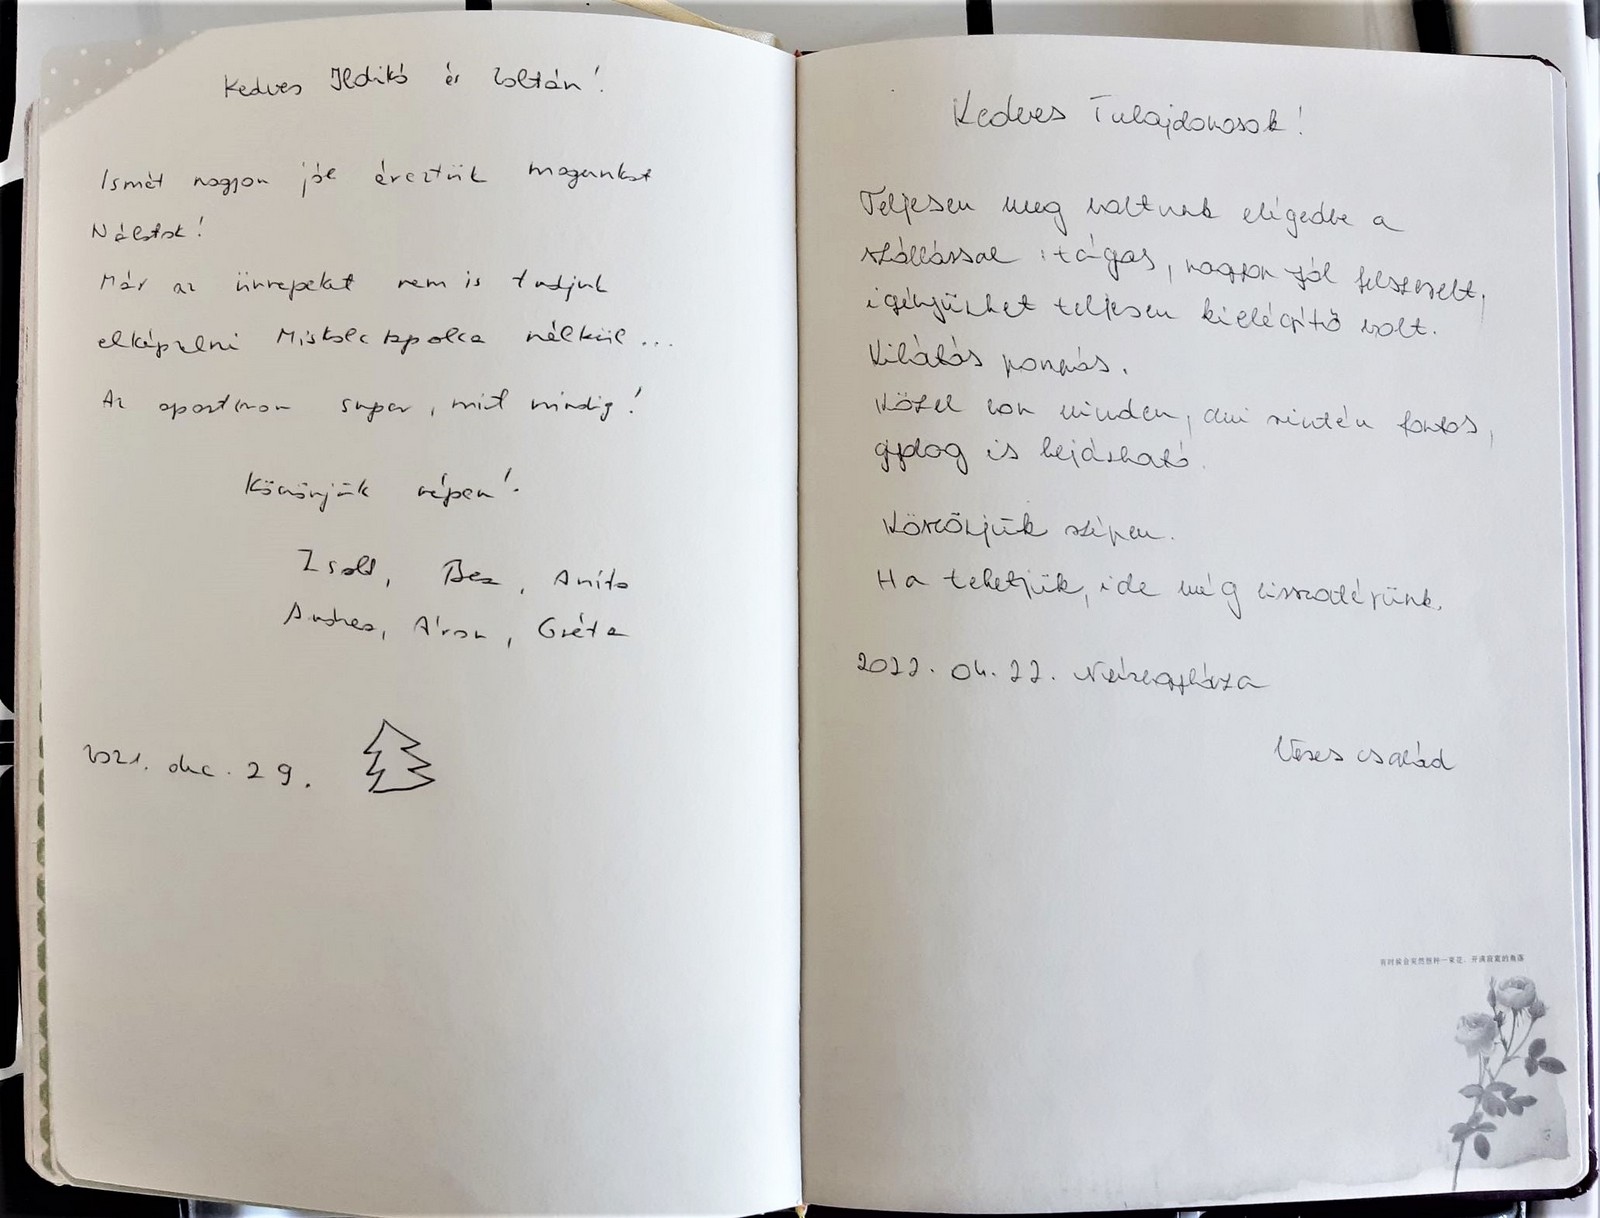 Kedves Ildikó és Zoltán!
Ismét nagyon jól éreztük magunkat
Nálatok!
Már az ünnepeket nem is tudjuk
elképzelni Miskolctapolca nélkül...
Az apartman super, mint mindig!
Köszönjük szépen!
Zsolt, Bea, Anita
Andrea, Áron, Gréta
2021. dec. 29.
Kedves Tulajdonosok!
Teljesen meg voltunk elégedve a
szállással: tágas, nagyon jól felszerelt,
igényünket teljesen kielégítő volt.
Kilátás pompás.
Közel van minden, ami szintén fontos,
gyalog is bejárható.
Köszönjük szépen.
Ha tehetjük, ide még visszatérünk.
2022. 04. 22. Nyíregyháza
család
有时候会突然想种一束花，开满寂寞的角落